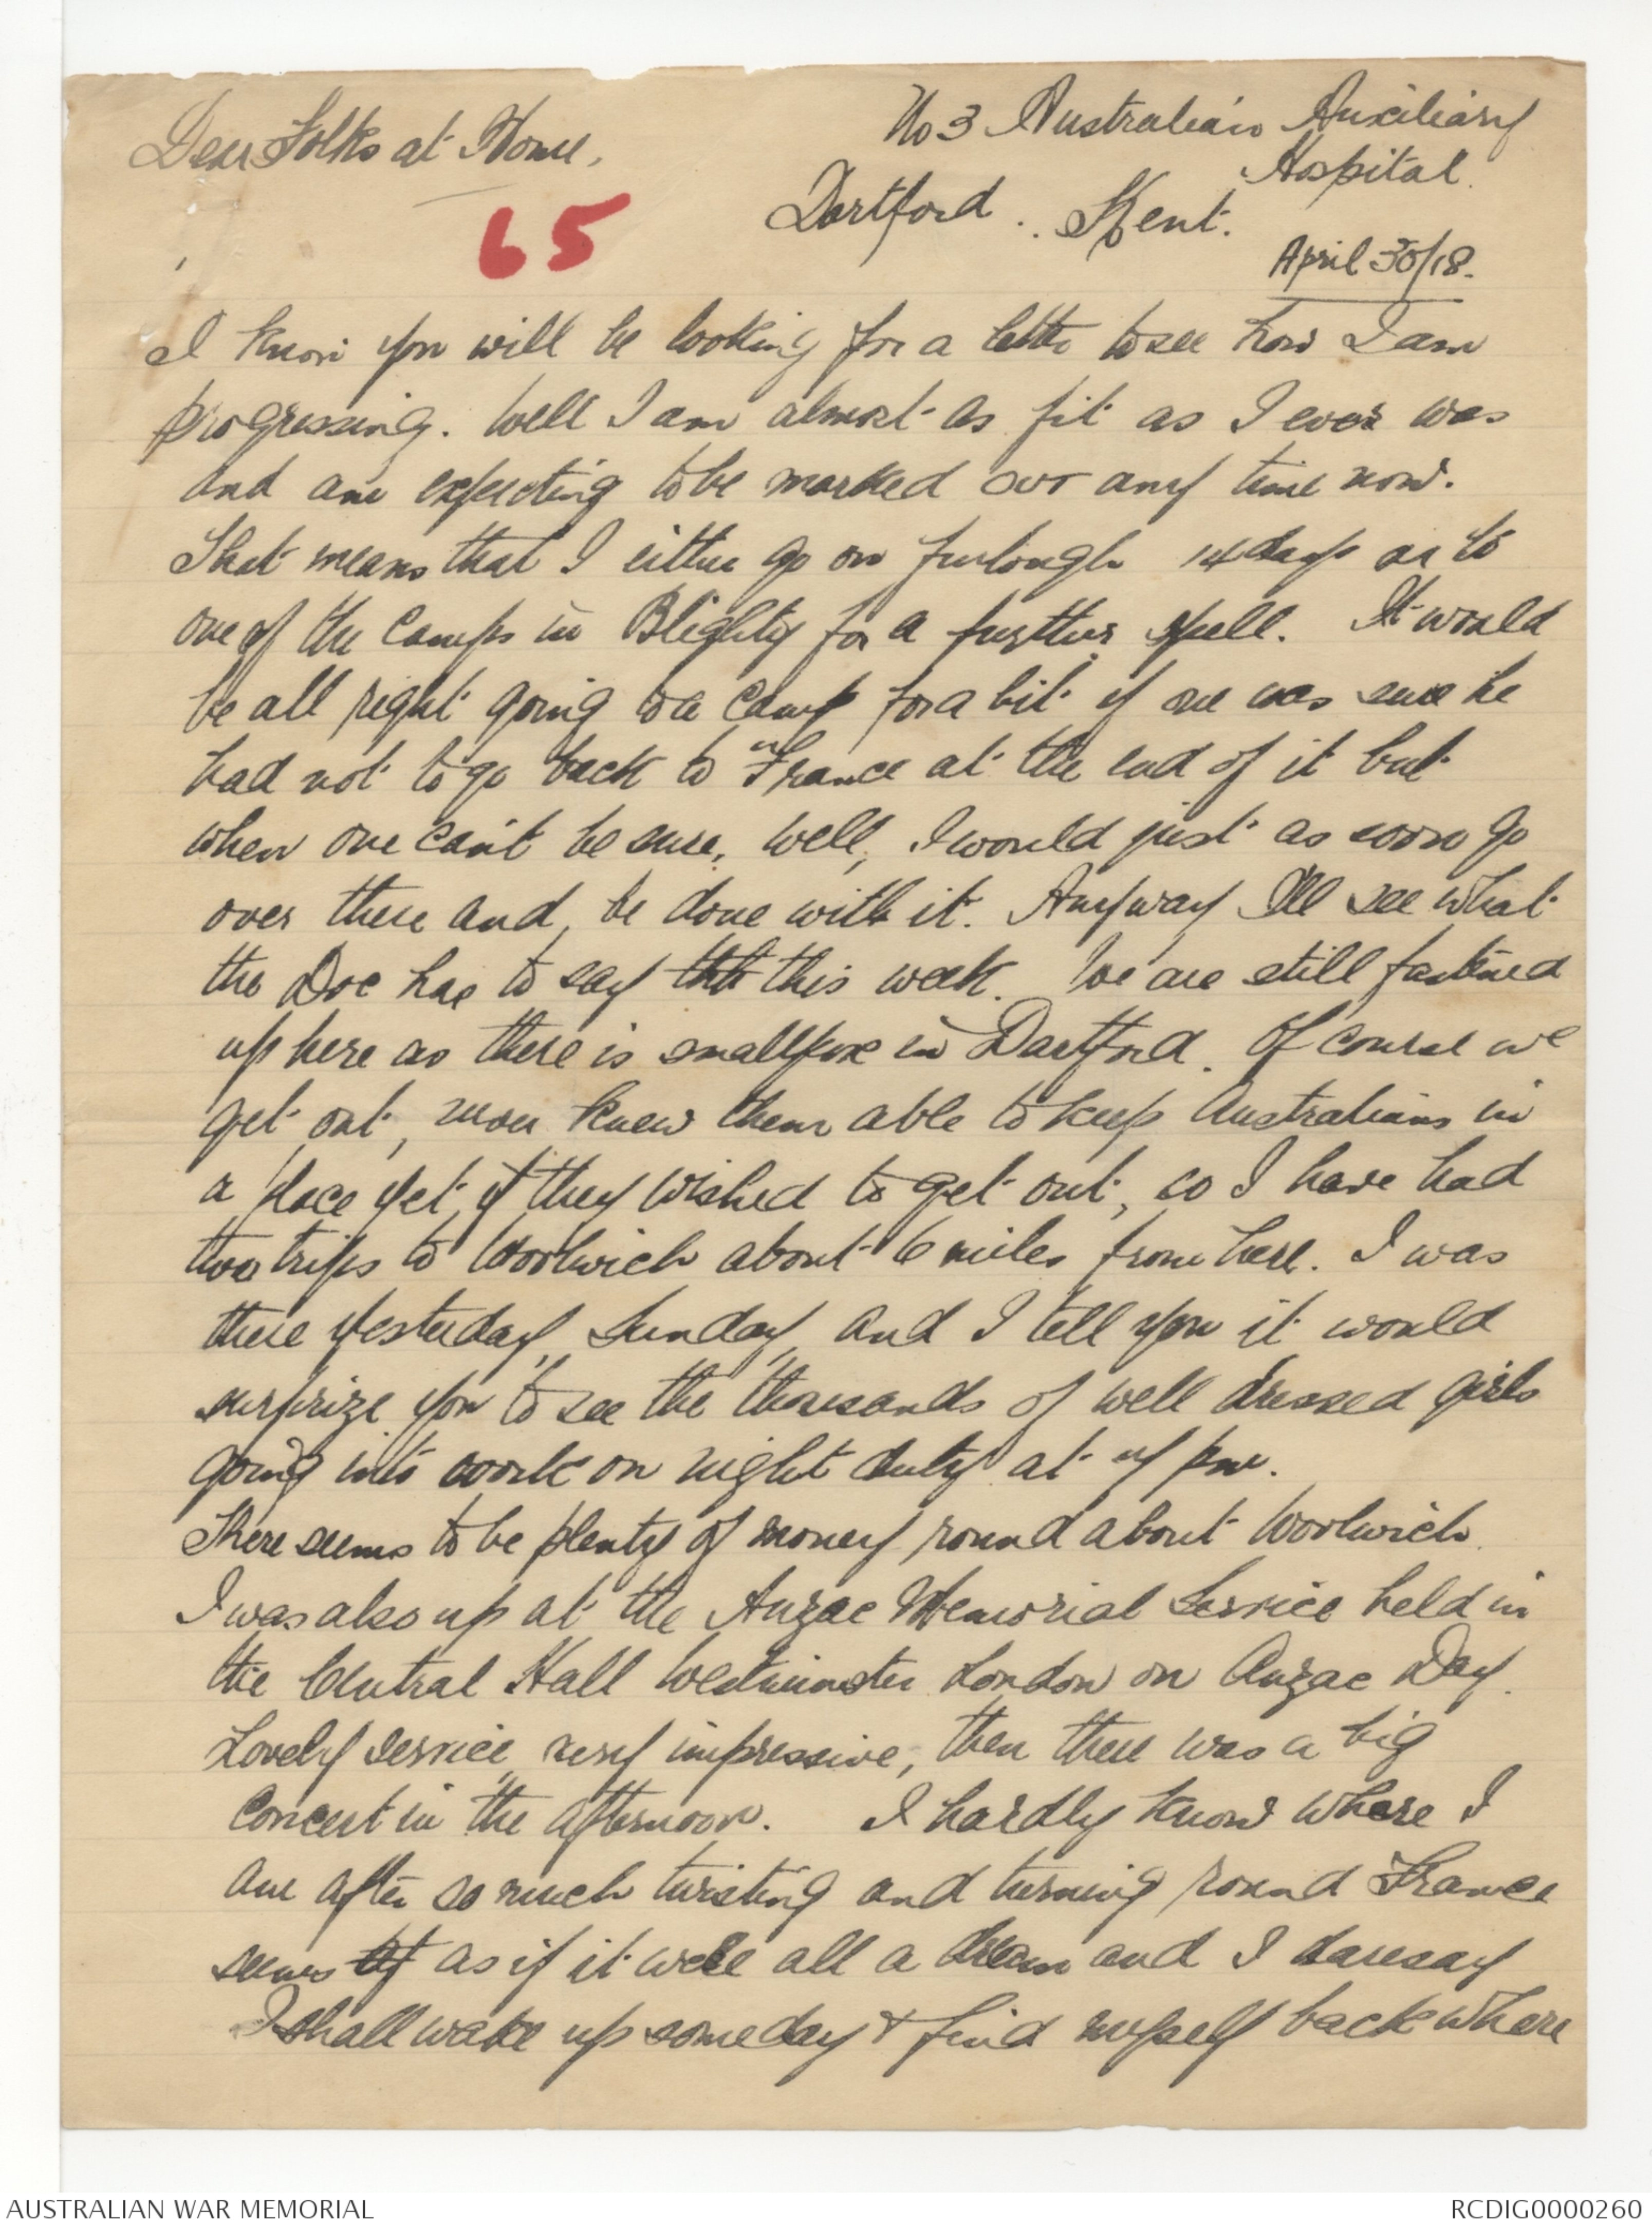 No 3 Australian Auxiliary
Hospital.
Dear Folks at Home,
Dartford . . Kent.
65
April 30/18.
I know you will be looking for a letter to see how I am
progressing. Well I am almost as fit as I ever was
and am expecting to be marked out any time now.
That means that I either go on furlough 14 days or to
one of the Camps in Blighty for a further spell. It would
be all right going to a Camp for a bit if one was sure he
had not to go back to "France at the end of it but
when one can't be sure, well, I would just as soon go
over there and be done with it. Anyway I'll see what
the Doc has to say this week. We are still fastened
up here as there is smallpox in Dartford. Of course we
get out, never knew them able to keep Australians in
a place yet if they wished to get out, so I have had
two trips to Woolwich about 6 miles from here. I was
there yesterday, Sunday, and I tell you it would
surprize you to see the thousands of well dressed girls
going into work on night duty at pm.
There seems to be plenty of money round about Woolwich.
I was also up at the Anzac Memorial Service held in
the Central Hall Westminster London on Anzac Day.
Lovely service, very impressive, then there was a big
Concert in the afternoon. I hardly know where I
am after so much twisting and turning round France
seems as if it were all a dream and I daresay
I shall wake up someday & find myself back where
AUSTRALIAN WAR MEMORIAL
RCDIG0000260